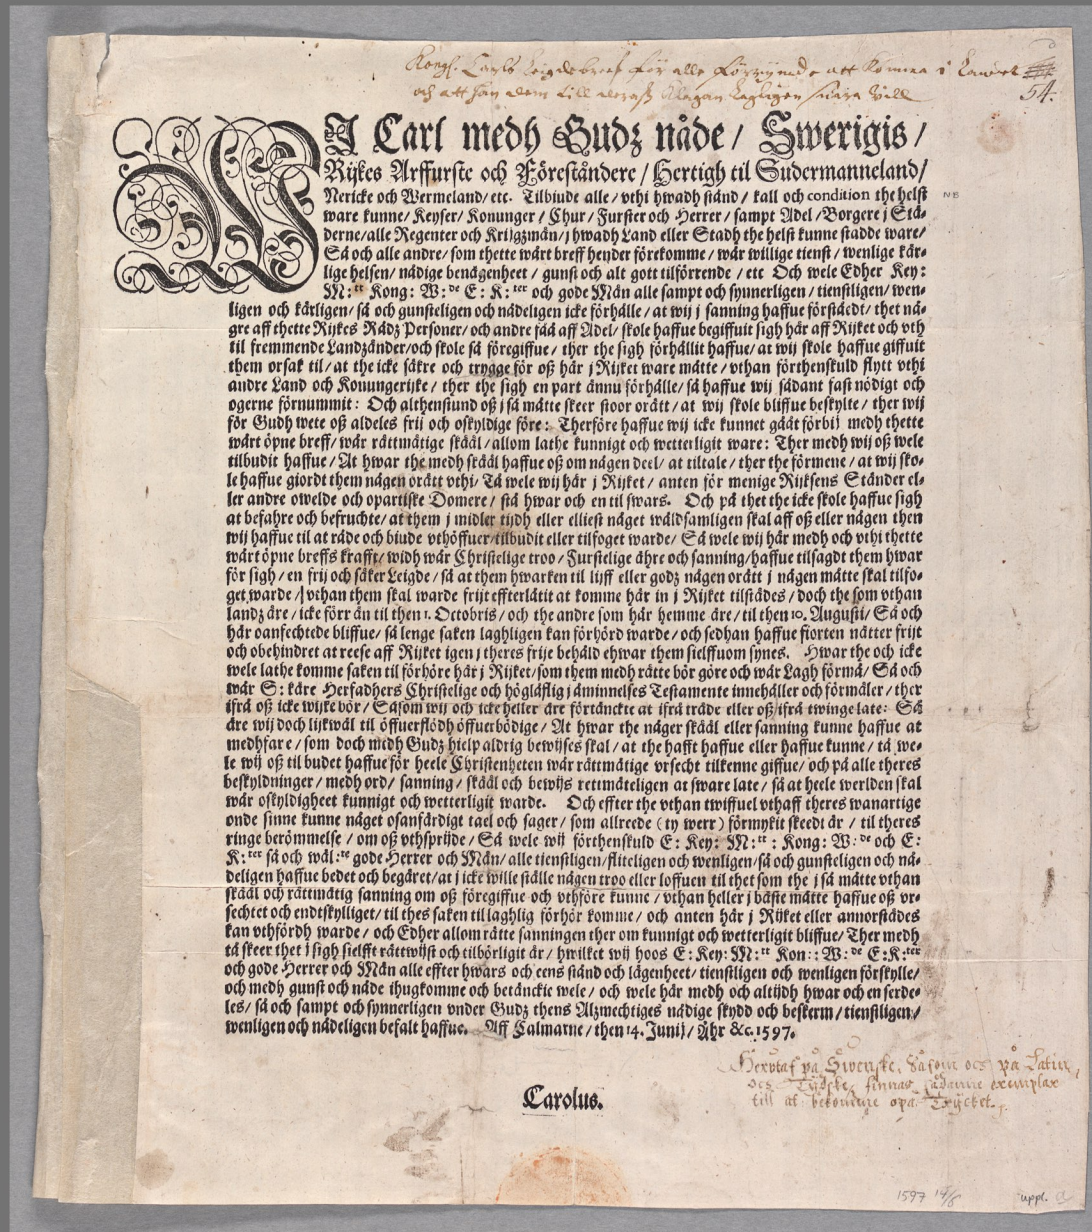 Kongl. Carls Leigdebreef för alle Förrymde att komma i Landet
och att han dem till deras klagan lagligen swara will
54.
WJ Carl medh Gudz nåde / Swerigis /
Rijkes Arffurste och Föreståndere / Hertigh til Sudermanneland /
Nericke och Wermeland / etc. Tilbiude alle / vthi hwadh stånd / kall och condition the helst
NB
ware kunne / Keyser / Konunger / Chur / Furster och Herrer / sampt Adel / Borgere j Stä-
derne / alle Regenter och Krijgzmän / j hwadh Land eller Stadh the helst kunne stadde ware /
Så och alle andre / som thette wårt breff hender förekomme / wår willige tienst / wenlige kär-
lige helsen / nådige benägenheet / gunst och alt gott tilförrende / etc Och wele Edher Key:
M:tt Kong: W:de E: K:ter och gode Män alle sampt och synnerligen / tienstligen / wen-
ligen och kärligen / så och gunsteligen och nådeligen icke förhålle / at wij j sanning haffue förståedt / thet nå-
gre aff thette Rijkes Rådz Personer / och andre fää aff Adel / skole haffue begiffuit sigh här aff Rijket och vth
til fremmende Landzänder / och skole så föregiffue / ther the sigh förhållit haffue / at wij skole haffue giffuit
them orsak til / at the icke säkre och trygge för oß här j Rijket ware måtte / vthan förthenskuld flytt vthi
andre Land och Konungerijke / ther the sigh en part ännu förhålle / så haffue wij sådant fast nödigt och
ogerne förnummit: Och althenstund oß j så måtte skeer stoor orätt / at wij skole bliffue beskylte / ther wij
för Gudh wete oß aldeles frij och oskyldige före: Therföre haffue wij icke kunnet gåät förbij medh thette
wårt öpne breff / wår rättmätige skääl / allom lathe kunnigt och wetterligit ware: Ther medh wij oß wele
tilbudit haffue / At hwar the medh skääl haffue oß om nägen deel / at tiltale / ther the förmene / at wij sko-
le haffue giordt them någen orätt vthi / Tå wele wij här j Rijket / anten för menige Rijksens Stånder el-
ler andre owelde och opartiske Domere / stå hwar och en til swars. Och på thet the icke skole haffue sigh
at befahre och befruchte / at them j midler tijdh eller elliest någet wåldsamligen skal aff oß eller någen then
wij haffue til at råde och biude vthöffuer / tilbudit eller tilfoget warde / Så wele wij här medh och vthi thette
wårt öpne breffs krafft / widh wår Christelige troo / Furstelige ähre och sanning / haffue tilsagdt them hwar
för sigh / en frij och säker Leigde / så at them hwarken til lijff eller godz någen orätt j någen måtte skal tilfo-
get warde / vthan them skal warde frijt effterlåtit at komme här in j Rijket tilstädes / doch the som vthan
landz äre / icke förr än til then 1. Octobris / och the andre som här hemme äre / til then 10. Augusti / Så och
här oanfechtede bliffue / så lenge saken laghligen kan förhörd warde / och sedhan haffue fiorten nätter frijt
och obehindret at reese aff Rijket igen j theres frije behåld ehwar them sielffuom synes. Hwar the och icke
wele lathe komme saken til förhöre här j Rijket / som them medh rätte bör göre och wår Lagh förmå / Så och
wår S: käre Herfadhers Christelige och höglåflig j åminnelses Testamente innehåller och förmäler / ther
ifrå oß icke wijke bör / Såsom wij och icke heller äre förtänckte at ifrå träde eller oß ifrå twinge late: Så
äre wij doch lijkwäl til öffuerflödh öffuerbödige / At hwar the någer skääl eller sanning kunne haffue at
medhfare / som doch medh Gudz hielp aldrig bewijses skal / at the hafft haffue eller haffue kunne / tå we-
le wij oß til budet haffue för heele Christenheten wår rättmätige vrsecht tilkenne giffue / och på alle theres
beskyldninger / medh ord / sanning / skääl och bewijs rettmäteligen at sware late / så at heele werlden skal
wår oskyldigheet kunnigt och wetterligit warde. Och effter the vthan twiffuel vthaff theres wanartige
onde sinne kunne någet osanfärdigt tael och sager / som allreede (ty werr) förmykit skeedt är / til theres
ringe berömmelse / om oß vthsprijde / Så wele wij förthenskuld E: Key: M:tt: Kong: W:de och E:
K:ter så och wäl:te gode Herrer och Män / alle tienstligen / fliteligen och wenligen / så och gunsteligen och nå-
deligen haffue bedet och begäret / at j icke wille ställe någen troo eller loffuen til thet som the j så måtte vthan
skääl och rättmätig sanning om oß föregiffue och vthföre kunne / vthan heller j bäste måtte haffue oß vr-
sechtet och endtskylliget / til thes saken til laghlig förhör komme / och anten här j Rijket eller annorstådes
kan vthfördh warde / och Edher allom rätte sanningen ther om kunnigt och wetterligit bliffue / Ther medh
tå skeer thet j sigh sielfft rättwijst och tilbörligit är / hwilket wij hoos E: Key: M:tt Kon:: W:de E:K:ter
och gode Herrer och Män alle effter hwars och eens stånd och lägenheet / tienstligen och wenligen förskylle /
och medh gunst och nåde ihugkomme och betänckie wele / och wele här medh och altijdh hwar och en serde-
les / så och sampt och synnerligen vnder Gudz thens Alzmechtiges nådige skydd och beskerm / tienstligen /
wenligen och nådeligen befalt haffue. Aff Calmarne / then 14. Junij / Åhr &c. 1597.
Herutaf på Swenske, Såsom och på Latin,
och Tydske, finnas sådanne exemplar
till at bekomme opå Trycket.
Carolus.
1597 14/8 uppl. a